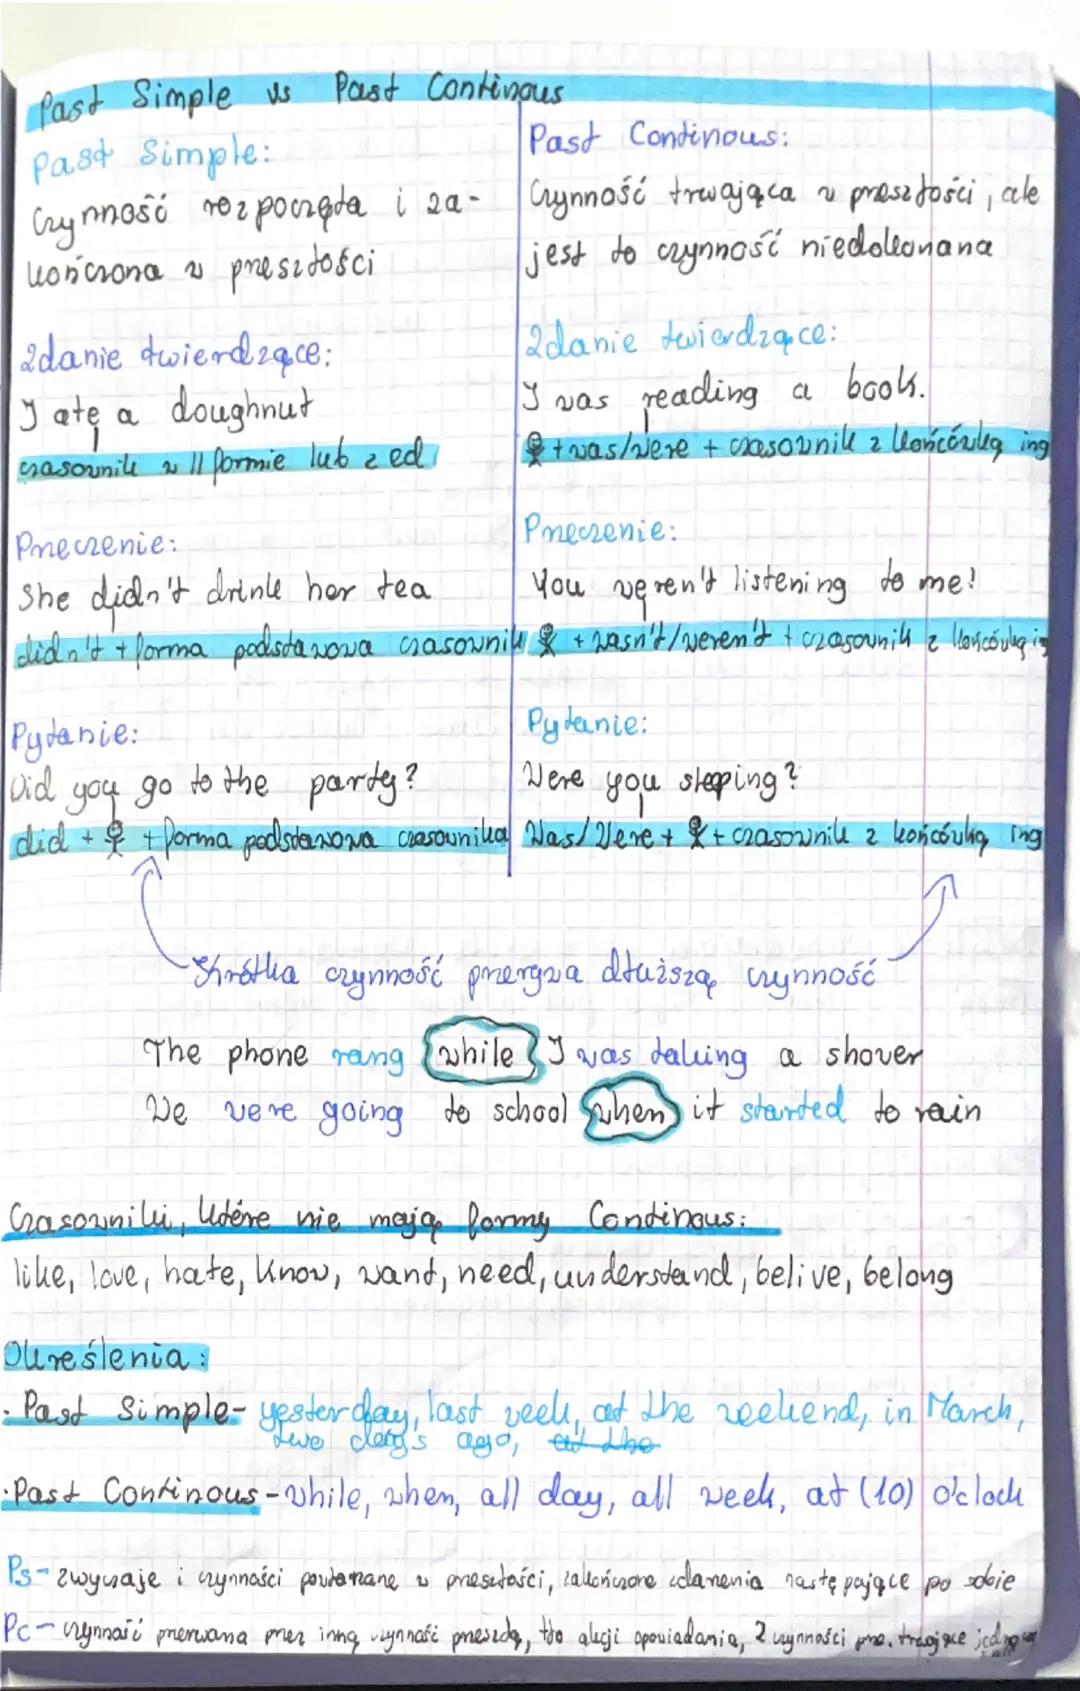 Past Simple vs Past Continous
Past Simple:
Czynność rozpoczęta i za-
kończona w przeszłości
Zdanie twierdzące:
I ate a doughnut
czasownik w II formie lub z ed
Przeczenie:
She didn't drink her tea
didn't + forma podstawowa czasownik
Pytanie:
Did you go to the party?
did + + forma podstawowa czasownika
Past Continous:
Czynność trwająca w przeszłości, ale
jest to czynność niedokonana
Zdanie twierdzące:
I was reading a book.
+ was/were + czasownik z końcówką ing
Przeczenie:
You weren't listening to me!
+ wasn't/weren't + czasownik z końcówką ing
Pytanie:
Were you sleeping?
Was/Were + + czasownik z końcówką ing
Krótka czynność przerywa dłuższą czynność
The phone rang while I was taking a shower
We were going to school when it started to rain
Czasowniki, które nie mają formy Continous:
like, love, hate, know, want, need, understand, belive, belong
Określenia:
· Past Simple - yesterday, last week, at the weekend, in March,
two days ago, at the
· Past Continous - while, when, all day, all week, at (10) o'clock
Ps - zwyczaje i czynności powtarzane w przeszłości, zakończone zdarzenia następujące po sobie
Pc - czynność przerwana przez inną czynność przeszłą, tło akcji opowiadania, 2 czynności prze. trwające